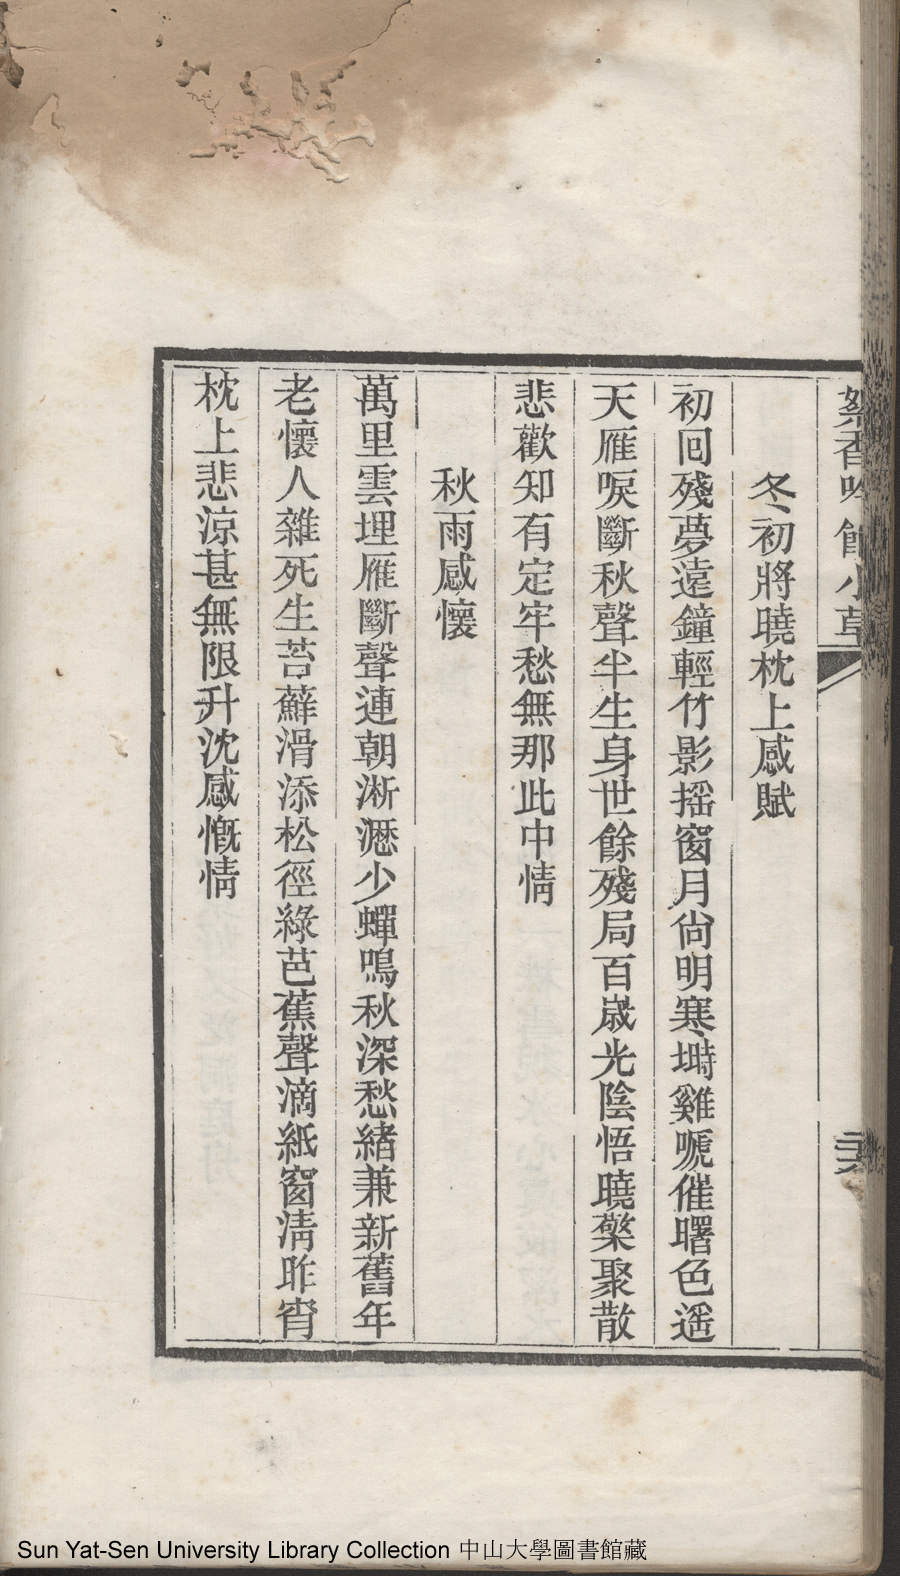 絮香吟館小草
冬初將曉枕上感賦
初回殘夢遠鐘輕竹影搖窗月尙明寒塒雞唬催曙色遥
天雁唳斷秋聲半生身世餘殘局百歲光陰悟曉檠聚散
悲歡知有定牢愁無那此中情
秋雨感懷
萬里雲埋雁斷聲連朝淅瀝少蟬鳴秋深愁緒兼新舊年
老懷人雜死生苔蘚滑添松徑綠芭蕉聲滴紙窗淸昨宵
枕上悲涼甚無限升沈感慨情
Sun Yat-Sen University Library Collection 中山大學圖書館藏